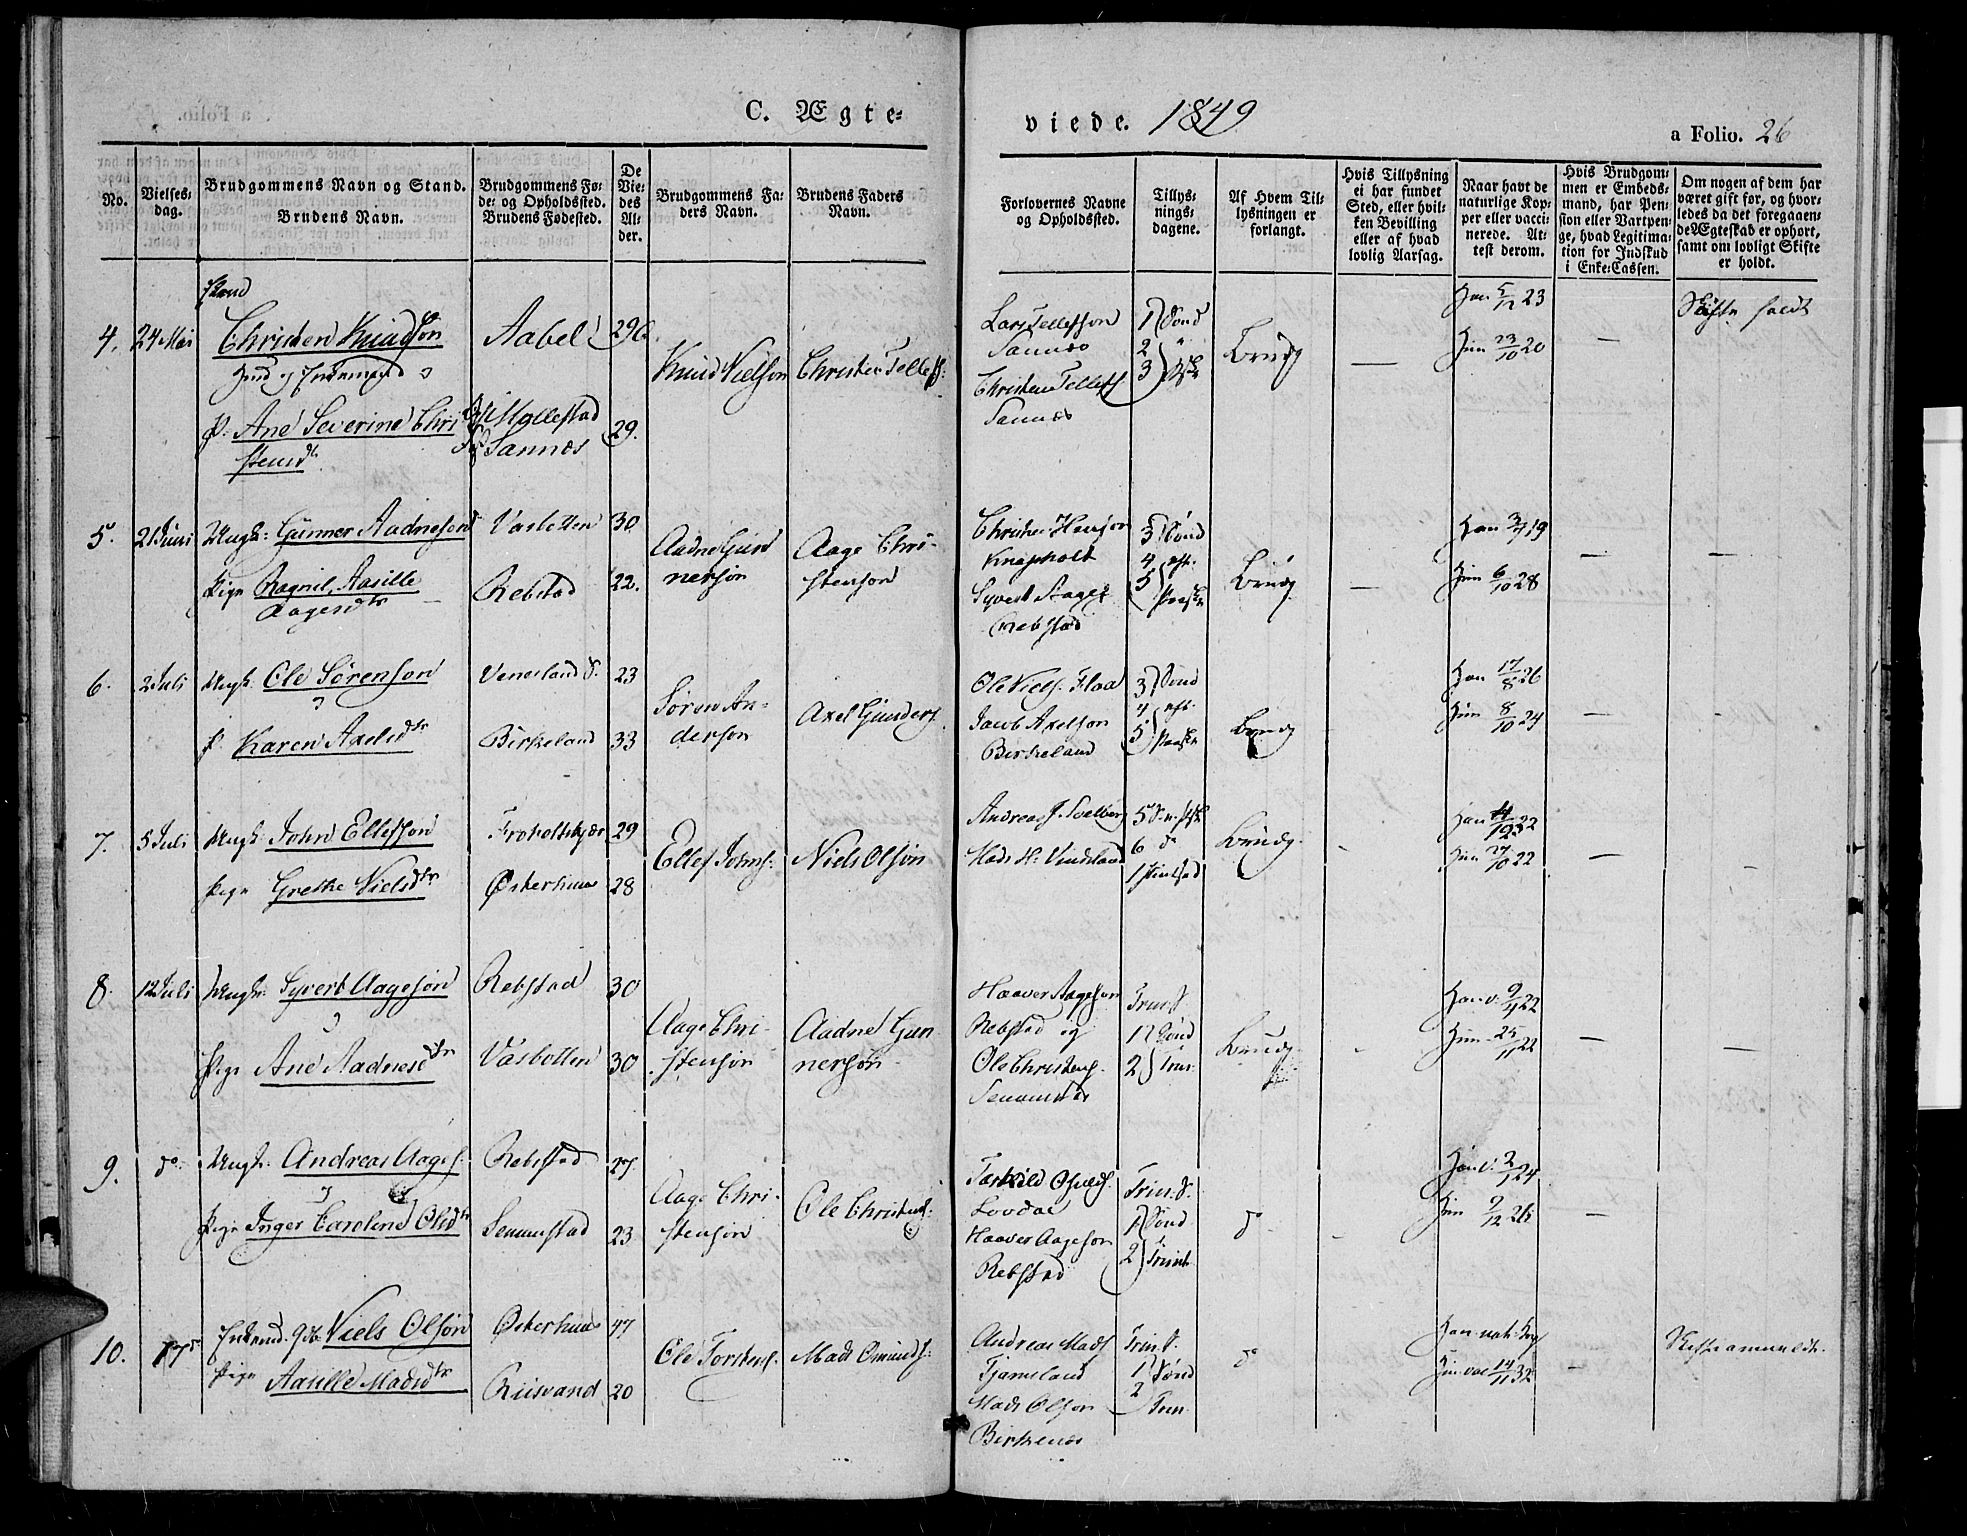 C. Ægte-
viede. 1849
a Folio. 26
No.
Vielses-
dag.
Brudgommens Navn og Stand.
Brudens Navn.
Brudgommens Fø-
de- og Opholdssted.
Brudens Fødested.
De
Vie-
des
Al-
der.
Brudgommens Fa-
ders Navn.
Brudens Faders
Navn.
Forlovernes Navne
og Opholdssted.
Tillys-
nings-
dagene.
Af Hvem Til-
lysningen er
forlangt.
Hvis Tillysning
ei har fundet
Sted, eller hvil-
ken Bevilling
eller af hvad
lovlig Aarsag.
Naar havt de
naturlige Kop-
per eller vacci-
nerede. At-
test derom.
Hvis Brudgom-
men er Embeds-
mand, har Pen-
sion eller Vartpen-
ge, hvad Legitima-
tion for Indskud
i Enke-Cassen.
Om nogen af dem har
været gift før, og hvor-
ledes da det foregaaen-
de Ægteskab er ophørt,
samt om lovligt Skifte
er holdt.
4. 24 Mai
Christen Knudsøn
P. Ane Severine Chri
stensd.
Aabel
Mollestad
Sannæs
29
29.
Knud Nielsøn
Christen Tellefs.
Lars Tellefsøn
Sannæs
Christen Tellefs
Sannæs
1 Sønd
2 "
3
Brudg
—
Han 5/12 23
Hun 23/10 20
—
5. 21 Juni
Ungk: Gunner Aadnesøn
Pige Ragnil Aasille
Aagesdtr
Vasbotten
Rebstad
30
22.
Aadne Gun
nersøn
Aage Chri-
stensøn
Christen Hansøn
Knapholt
Syvert Aages
Rebstad
3 Sønd
4 eft.
5 Paaske
Brudg.
—
Han 3/7 19
Hun 6/10 28
—
—
6. 2 Juli
Ungk. Ole Sörensøn
P. Karen Axelsdtr
Veneland
Birkeland
23
33
Sören An-
dersøn
Axel Gunders.
Ole Niels. Flaa
Jacob Axelsøn
Birkeland
3 Sønd
4 eft.
5 Paaske
Brudg
Han 17/8 26
Hun 8/10 24
—
7. 5 Juli
Ungk: John Ellefsøn
Pige Grethe Nielsdtr
Østerhuus
29
28
Ellef Johns.
Niels Olsøn
Mads H. Vindsland
5
6 do
1
Brudg.
Han 22
Hun 27/10 22
—
8. 12 Juli
Ungk: Syvert Aagesøn
Pige Ane Aadnesdtr
Rebstad
Vasbotten
30
30
Aage Chri-
stensøn
Aadne Gun
nersøn
Haaver Aagesøn
Rebstad og
Ole Christens.
Trin. S.
1 Sønd
2 Trin.
Brudg.
Han v. 9/9 22
Hun 25/11 22
—
—
9. do
Ungk: Andreas Aages.
Pige Inger Caroline Olsdtr
Rebstad
Senumstad
27.
23
Aage Chri-
stensøn
Ole Christens.
Lovdal
Haaver Aagesøn
Rebstad
Trin. S.
1 Sønd
2 Trinit
do
Han v. 24
Hun 9/12 26
—
10. 17 do
Niels Olsøn
Pige
Aasille Madsdtr
Østerhuus
Riisvand
47
20
Ole Torstens.
Mads Omunds.
Andreas Mads
Tjameland
Mads Olsøn
Birkenæs
Trin. S.
1 Sønd
2 Trin.
do
Han nat. Kop
Hun vac 14/11 32
—